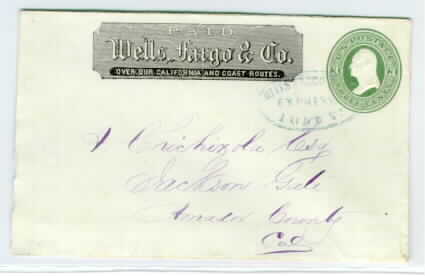 PAID
Wells, Fargo & Co.
OVER OUR CALIFORNIA AND COAST ROUTES.
U.S. POSTAGE
EXPRESS
Chichizola Esq
Jackson Gate
Amador County
Cal